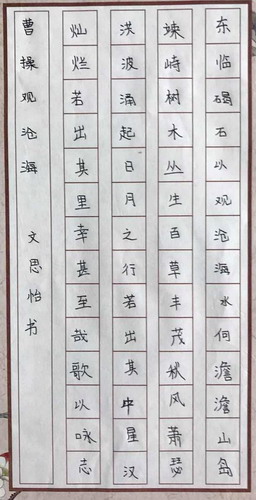 东临碣石以观沧海水何澹澹山岛
竦峙树木丛生百草丰茂秋风萧瑟
洪波涌起日月之行若出其中星汉
灿烂若出其里幸甚至哉歌以咏志
曹操观沧海 文思怡书